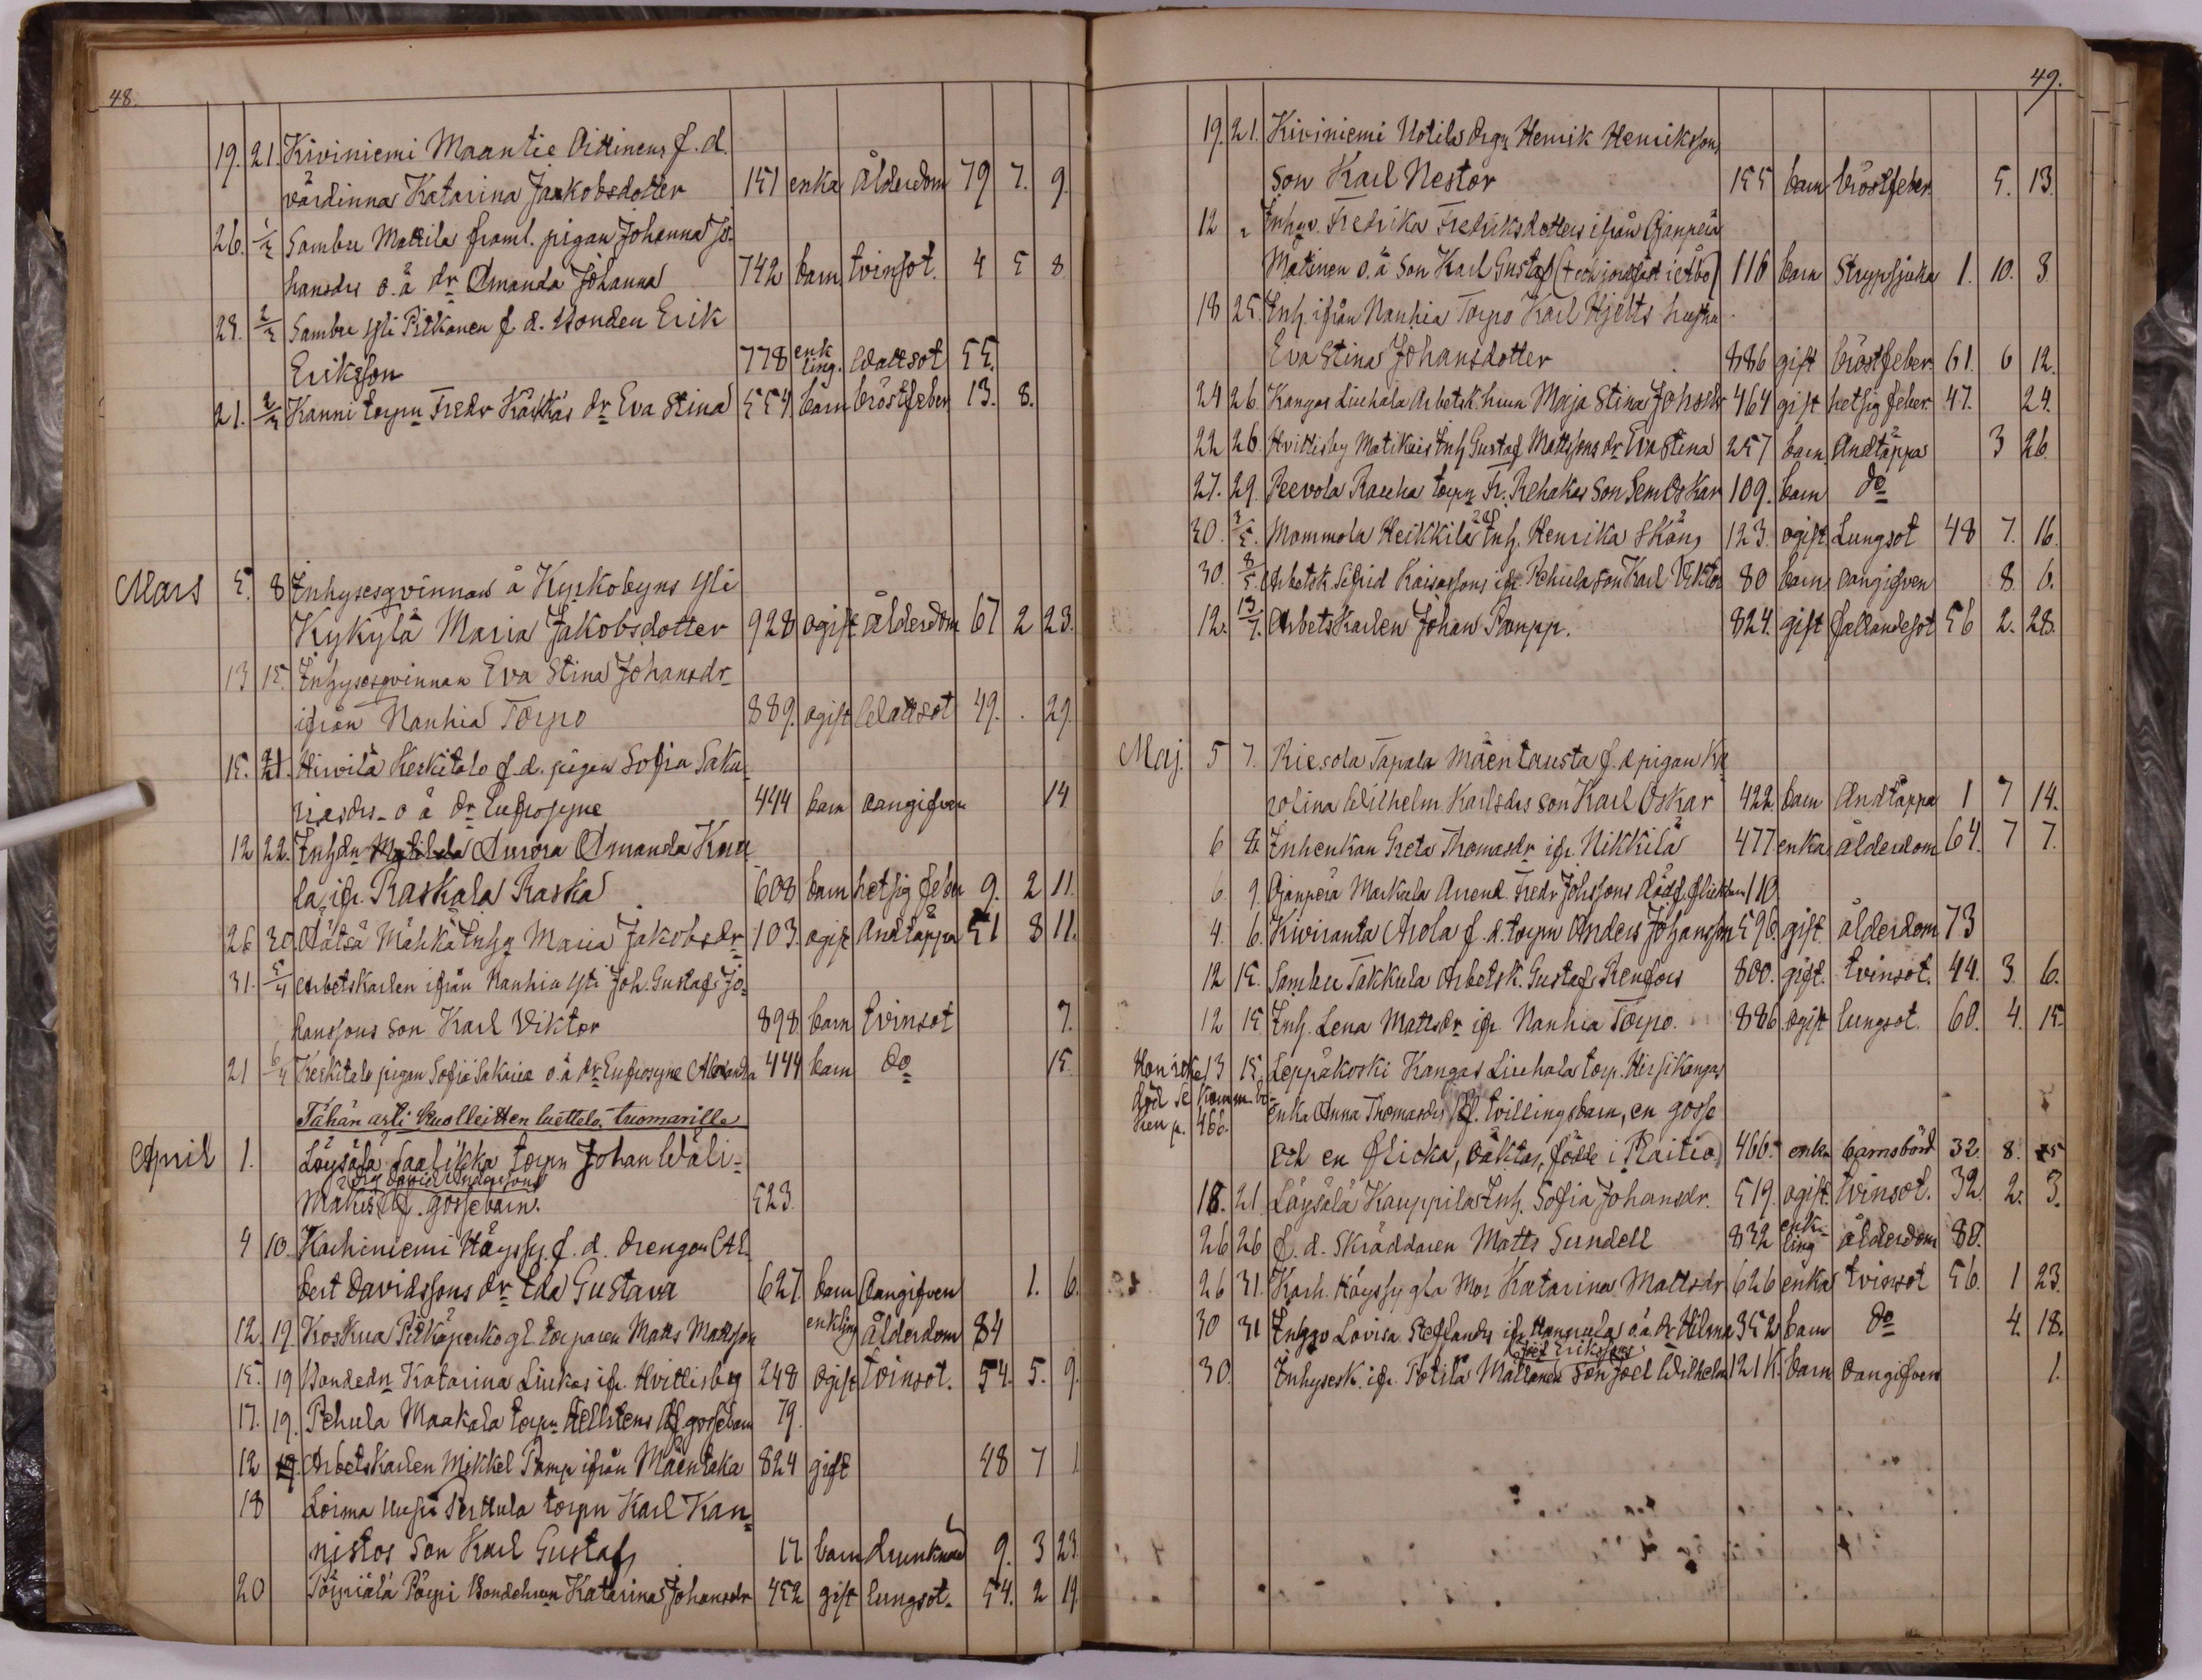 48.
19. 21. Kiviniemi Maantie Aittinens f. d.
värdinna Katarina Jaakobsdotter 151 enka Ålderdom 79 7. 9.
26. 1/3 Sambu Mattila framl. pigan Johanna Jo-
hansdrs o. ä dr Amanda Johanna 742 barn tvinsot. 4 5 8
23. 2/3 Sambu Yli Pitkanen f. d. Bonden Erik
Eriksson 778 enkling. Wattsot 55.
21. 2/3 Kanni torpn Fredr Käkkäs dr Eva Stina 554. barn bröstfeber 13. 8.
Mars 5. 8 Inhysesqvinnan å Kyrkobyns Yli
Kykylä Maria Jakobsdotter 928 ogift ålderdom 67 2 23.
13 15. Inhysesqvinnan Eva Stina Johansdr
ifrån Nanhia Torpo 889. ogift Wattsot 49. . 29.
15. 21. Hirvilä Keskitalo f. d. pigan Sofia Saka-
riasdrs o ä dr Eufrosyne 444 barn oangifven 14
12 22. Inhdn Matilda Aurora Amanda Kau-
la, ifr. Raskala Raska 608 barn hetsig feber 9. 2 11.
26 30. Mähkä Inhq Maria Jakobsdr 103. ogift Andtäppa 51 8 11.
31. 5/4 Arbetskarlen ifrån Nanhia Yli Joh. Gustaf Jo-
hanssons son Karl Viktor 898 barn tvinsot 7.
21 6/4 Keskitalo pigan Sofia Sakrias o. ä dr Eufrosyne Alexandra 444 barn do 15.
Tähän asti kuolleitten luettelo tuomarille
April 1. Löysälä Saalikka torpn Johan Wäli-
Drg David Anderssons
mäkis df. gossebarn. 523.
4 10. Karhiniemi Höyssy f. d. drengen Al-
bert Davidssons dr Ida Gustava 627. barn Oangifven 1. 6.
12. 19. Koskua Pitkäperko gl. torparen Matts Mattsson enkling ålderdom 84
15. 19 Bondedn Katarina Liukas ifr. Hvittisby 248 ogift tvinsot. 54. 5. 9.
17. 19. Pehula Maakala torpn Hellstens df gossebarn 79.
12 19. Arbetskarlen Mikkel Pamp ifrån Mäentaka 824 gift 48 7 1
18 Loima Uusi Perttula torpn Karl Kan-
nistos son Karl Gustaf 17. barn drunknad 9. 3 23.
20 Pöyriälä Pöyri Bondehun Katarina Johansdr 452 gift lungsot. 54. 2 19.
49.
19. 21. Kiviniemi Uotilas drgn Henrik Henrikssons
son Karl Nestor 155 barn bröstfeber 5. 13.
12 " Inhqv. Fredrika Fredriksdotters ifrån Ojanperä
Matinen o. ä son Karl Gustaf (+ och jordfäst i Åbo) 116 barn Strypsjuka 1. 10. 3
18 25. Inh. ifrån Nanhia Torpo Karl Hjelts hustru
Eva Stina Johansdotter 886 gift bröstfeber 61. 6 12.
24 26. Kangas Liuhala Arbetsk. hun Maja Stina Johsdr 464 gift hetsig feber 47. 24.
22 26. Hvittisby Matikais Inh Gustaf Mattssons dr Eva Stina 257 barn Andtäppa 3 26.
27. 29. Peevola Rauha torpn Fr. Rehakas son Sem Oskar 109. barn do
30. 3/5. Mommola Heikkilä Inh. Henrika Skön 123. ogift Lungsot 48 7. 16.
30. 8/5. Arbetsk. Sefrid Kaisassons ifr. Pehula son Karl Viktor 80 barn oangifven 8. 6.
12. 13/7. Arbetskarlen Johan Pamp. 824. gift fallandesot 56 2. 28.
Maj. 5 7. Riesola Tapala Mäentausta f. d pigan Ka-
rolina Wilhelm Karlsdrs son Karl Oskar 422. barn Andtäppa 1 7 14.
6 8. Inhenkan Greta Thomasdr ifr. Nikkilä 477 enka ålderdom 64. 7 7.
6. 9. Ojanperä Markula Arrend. Fredr Johssons dödf. flickbarn 110
4. 6. Kiviranta Arola f. d. torpn Anders Johansson 596. gift. ålderdom 73
12 15. Sambu Takkula Arbetsk. Gustaf Renfors 800. gift. tvinsot. 44. 3. 6.
12 15 Inh. Lena Mattsdr ifr. Nanhia Torpo. 886 ogift lungsot. 60. 4. 15.
13 15. Leppäkoski Kangas Liuhala torp. Hirsikangas
enka Anna Thomasdrs df. tvillingsbarn, en gosse
och en flicka, oäkta, födde i Raitio 466. enka barnsbörd 32. 8. 25
18. 21. Löysälä Kauppilas Inh. Sofia Johansdr. 519. ogift tvinsot. 32. 2. 3.
26 26 f. d. Skräddaren Matts Sundell 832 enkling ålderdom 80.
26 31. Karh. Höyssy gla mor Katarina Mattsdr 626 enka tvinsot 56. 1 23.
30 31 Inhqv Lovisa Steflands ifr Hannula o. ä dr Hilma 352 barn do 4. 18.
Joel Erikssons
30. Inhysesk. ifr. Potila Mattanen son Joel Wilhelm 121 K. barn oangifven 1.